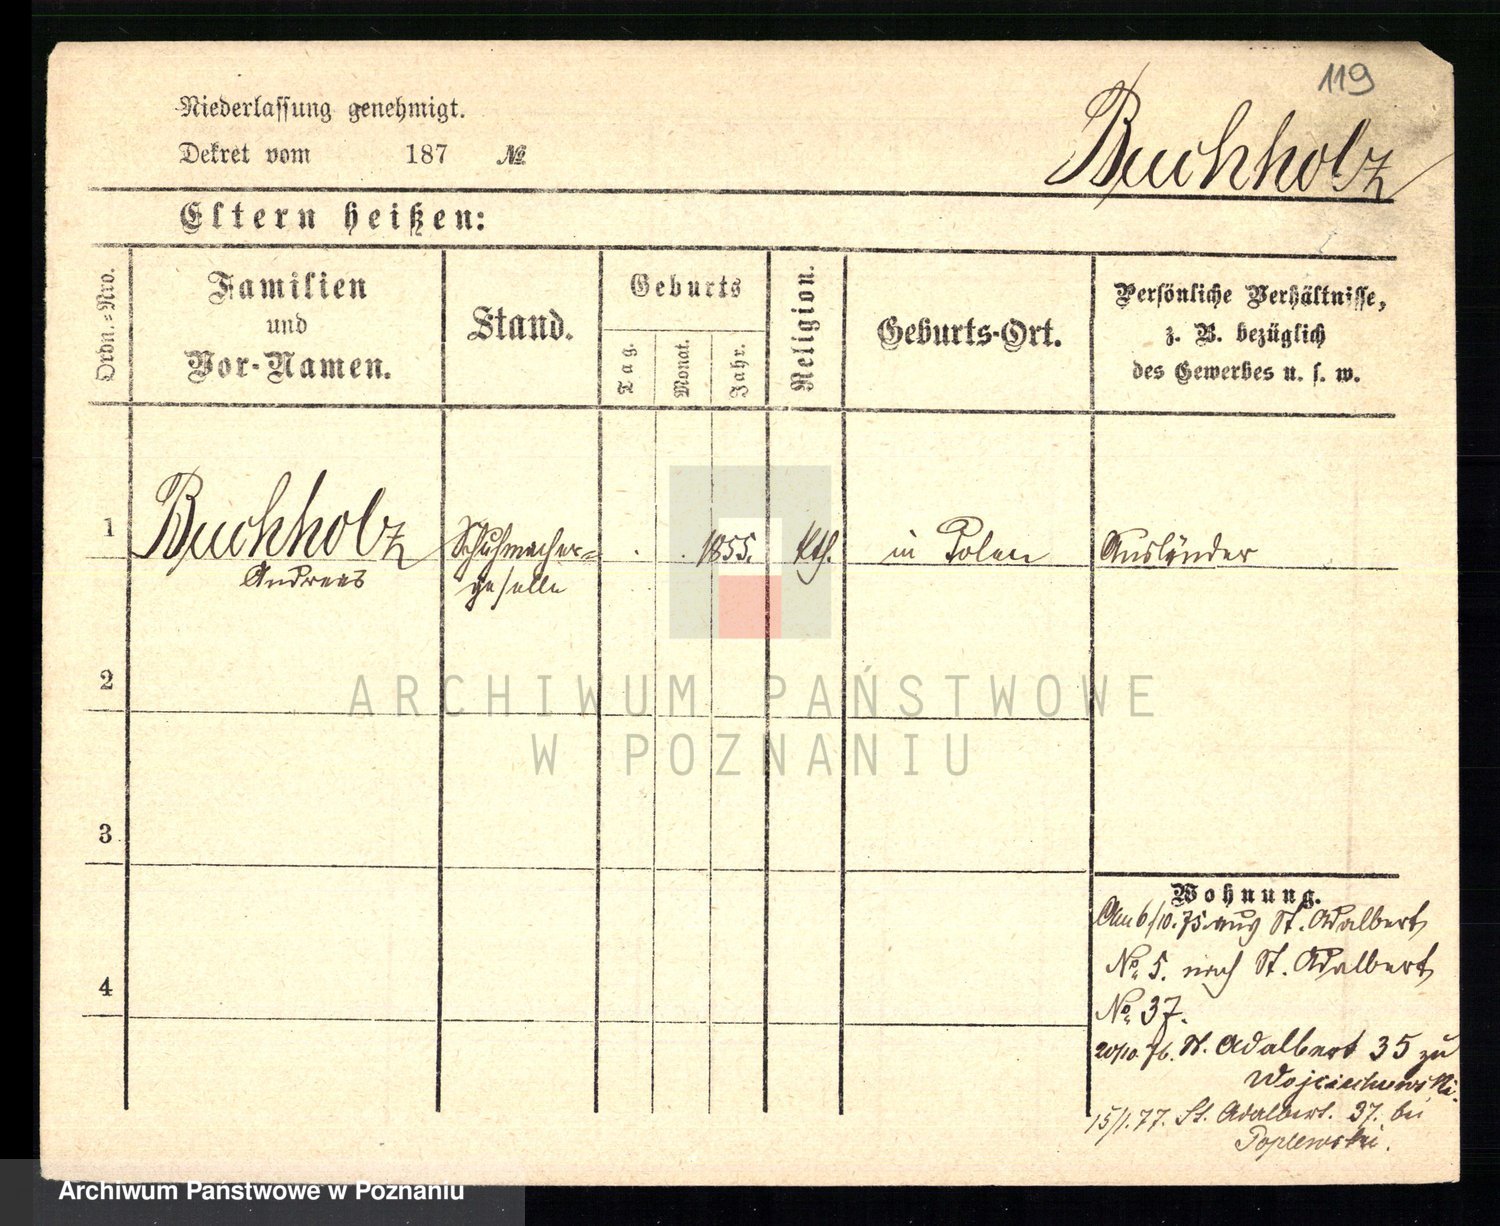 119
Niederlassung genehmigt.
Dekret vom 187 №
Buchholz
Eltern heißen:
Ordn.-Nro.
Familien
und
Vor-Namen.
Stand.
Geburts
Tag.
Monat.
Jahr.
Religion.
Geburts-Ort.
Persönliche Verhältnisse,
z. B. bezüglich
des Gewerbes u. s. w.
1 Buchholz Schuhmacher= 1855. kth. in Polen Ausländer
Andreas geselle
2
ARCHIWUM PAŃSTWOWE
W POZNANIU
3
Wohnung.
Am 6/10. 75 aus St. Adalbert
No. 5. nach St. Adalbert
4
No. 37.
20/10. 76. St. Adalbert 35 zu
Wojciechowski.
15/1. 77. St. Adalbert. 37. bei
Poplewski.
Archiwum Państwowe w Poznaniu